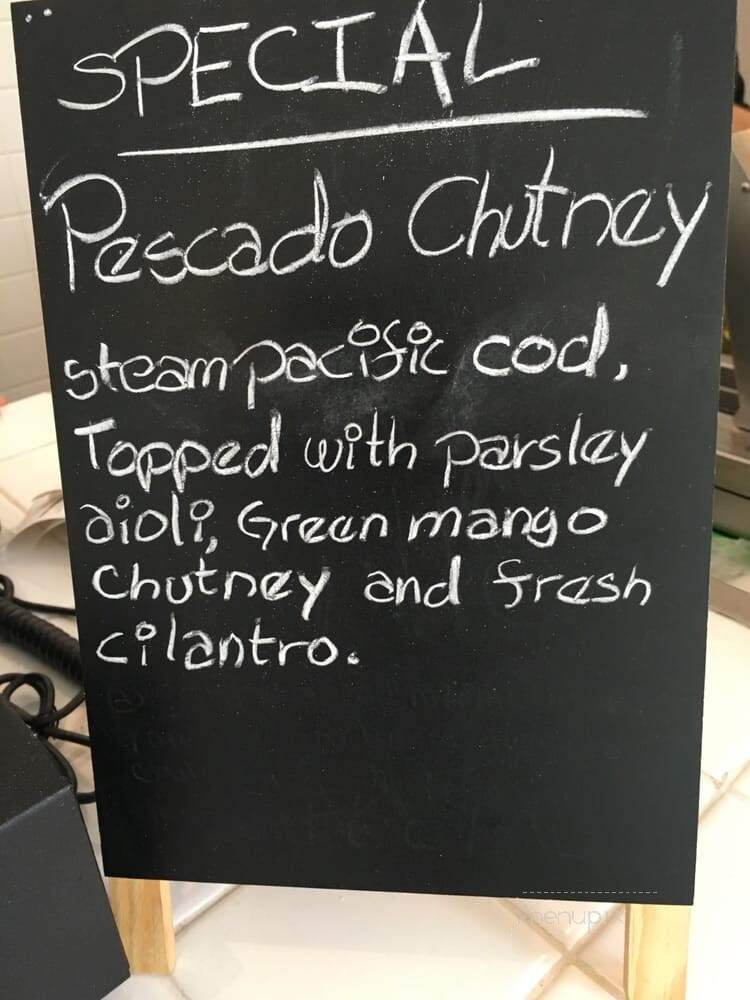 SPECIAL
Pescado Chutney
steam pacific cod,
Topped with parsley
aioli, Green mango
Chutney and fresh
cilantro.
menupix